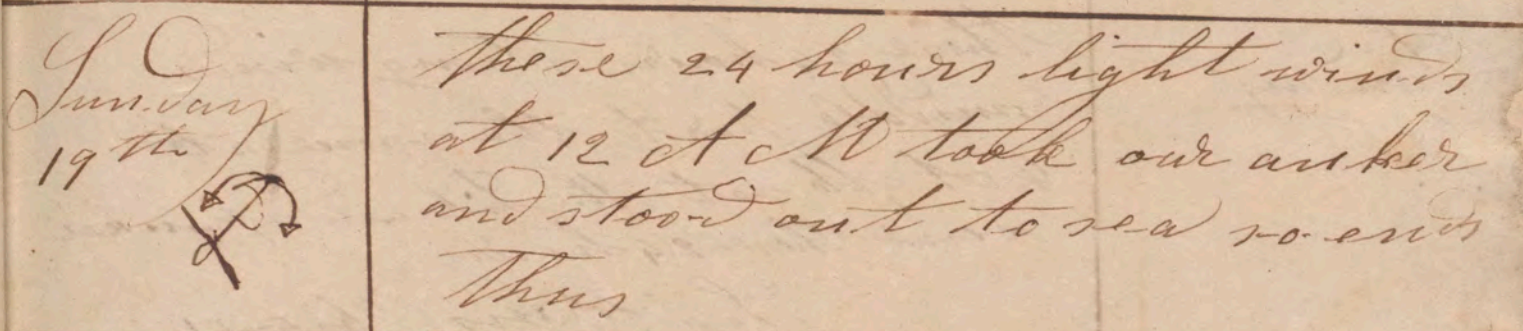 Sunday
19th
these 24 hours light winds
at 12 A M took our anker
and stood out to sea so ends
Thus